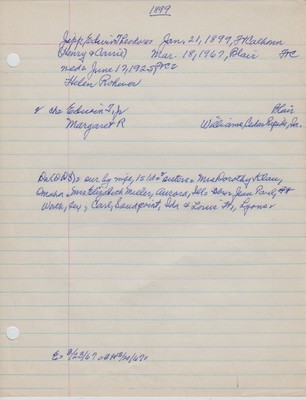 1899
Jepp, Edwin Theodore Jan. 21, 1899, Ft Calhoun
(Henry & Carrie) Mar. 18, 1967, Blair Ftc
md June 17, 1925 Ftc
Helen Rohwer
2 chs Edwin T, Jr Blair
Margaret R Williams, Cedar Rapids, Ia
sur by wife, 2 sisters Mrs Dorothy Klau,
Omaha Mrs Elizabeth Miller, Aurora, Ills Jean Paul, Ft
Worth, Tex, Carl, Sandpoint, Ida & Louie H, Lyons
E 3/23/67